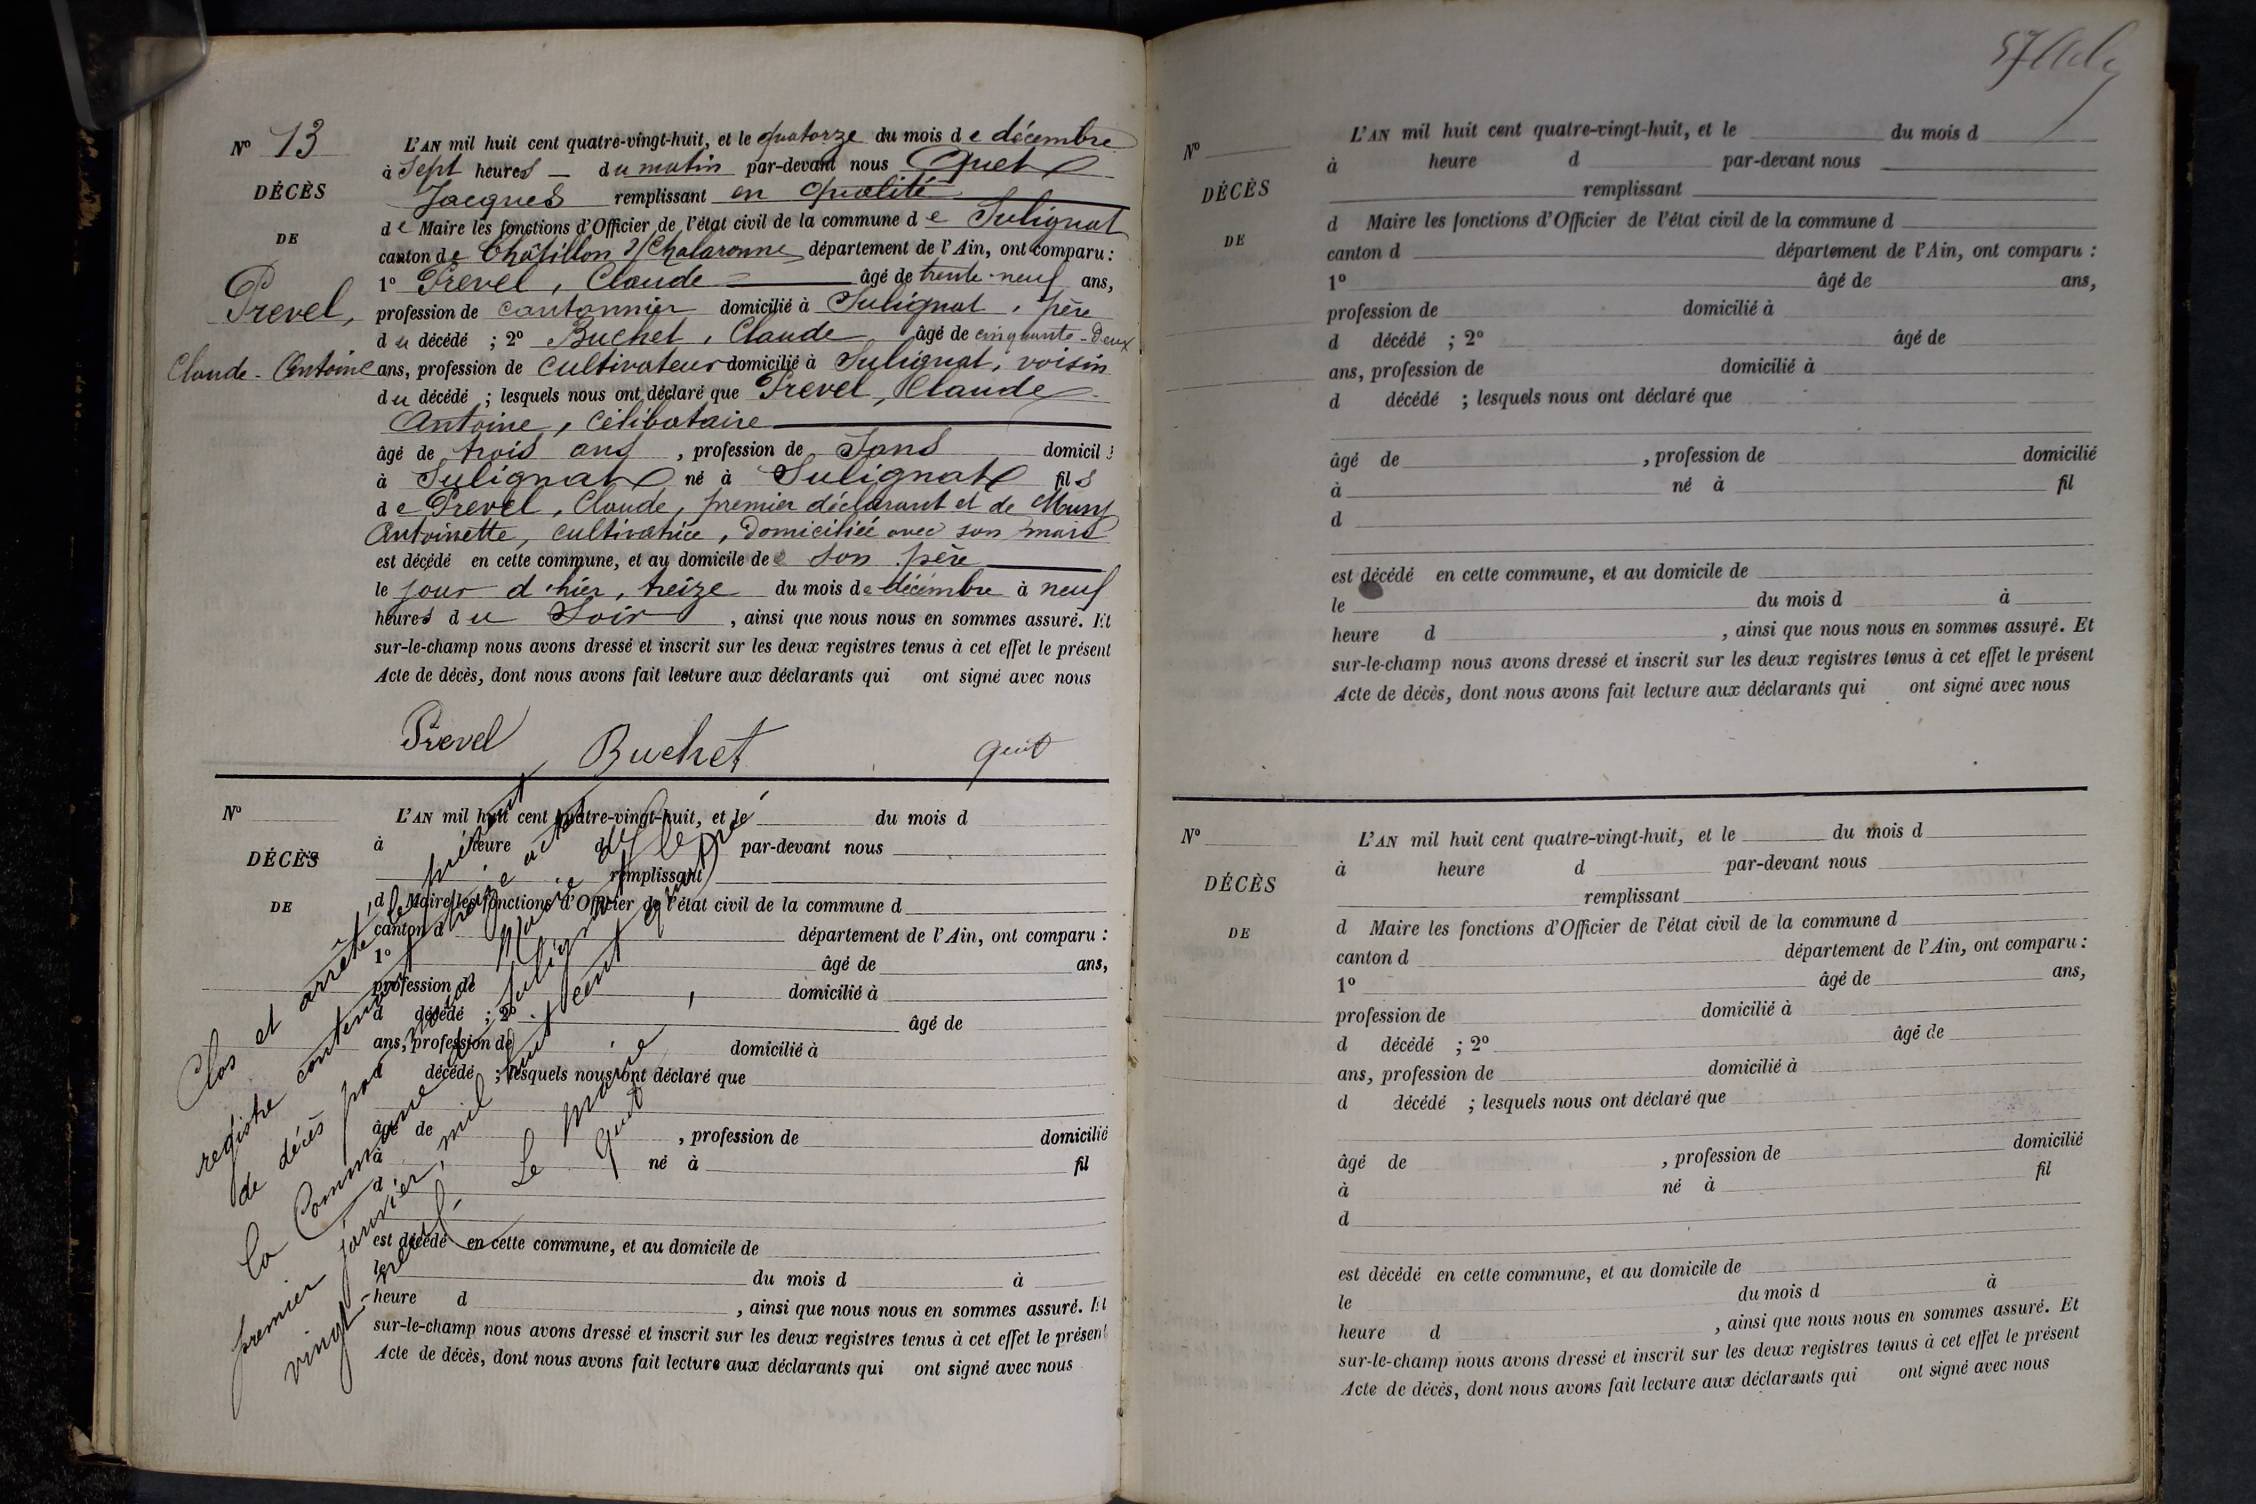 Nº 13
DÉCÈS
DE
Prevel,
Claude-Antoine
L'AN mil huit cent quatre-vingt-huit, et le quatorze du mois de décembre
à sept heures — du matin par-devant nous Quet
Jacques remplissant en qualité
de Maire les fonctions d'Officier de l'état civil de la commune de Sulignat
canton de Châtillon s/Chalaronne département de l'Ain, ont comparu :
1º Prevel, Claude = âgé de trente-neuf ans,
profession de cantonnier domicilié à Sulignat, père
du décédé ; 2º Buchet, Claude âgé de cinquante-deux
ans, profession de cultivateur domicilié à Sulignat, voisin
du décédé ; lesquels nous ont déclaré que Prevel, Claude
Antoine, célibataire
âgé de trois ans, profession de Sans domicilié
à Sulignat né à Sulignat fils
de Prevel, Claude, premier déclarant et de
Antoinette, cultivatrice, domiciliée avec son mari
est décédé en cette commune, et au domicile de son père
le jour d'hier, treize du mois de décembre à neuf
heures du Soir, ainsi que nous nous en sommes assuré. Et
sur-le-champ nous avons dressé et inscrit sur les deux registres tenus à cet effet le présent
Acte de décès, dont nous avons fait lecture aux déclarants qui ont signé avec nous
Prevel Buchet Quet
Nº
DÉCÈS
DE
L'AN mil huit cent quatre-vingt-huit, et le du mois d
à heure d par-devant nous
remplissant
d Maire les fonctions d'Officier de l'état civil de la commune d
canton d département de l'Ain, ont comparu :
1º âgé de ans,
profession de domicilié à
d décédé ; 2º âgé de
ans, profession de domicilié à
d décédé ; lesquels nous ont déclaré que
âgé de , profession de domicilié
à né à fil
d
est décédé en cette commune, et au domicile de
le du mois d à
heure d , ainsi que nous nous en sommes assuré. Et
sur-le-champ nous avons dressé et inscrit sur les deux registres tenus à cet effet le présent
Acte de décès, dont nous avons fait lecture aux déclarants qui ont signé avec nous
Clos et arrêté le présent
registre contenant treize actes
de décès par nous Maire de
la Commune de Sulignat le
premier janvier, mil huit cent quatre
vingt-neuf.
Le Maire
Quet
Nº
DÉCÈS
DE
L'AN mil huit cent quatre-vingt-huit, et le du mois d
à heure d par-devant nous
remplissant
d Maire les fonctions d'Officier de l'état civil de la commune d
canton d département de l'Ain, ont comparu :
1º âgé de ans,
profession de domicilié à
d décédé ; 2º âgé de
ans, profession de domicilié à
d décédé ; lesquels nous ont déclaré que
âgé de , profession de domicilié
à né à fil
d
est décédé en cette commune, et au domicile de
le du mois d à
heure d , ainsi que nous nous en sommes assuré. Et
sur-le-champ nous avons dressé et inscrit sur les deux registres tenus à cet effet le présent
Acte de décès, dont nous avons fait lecture aux déclarants qui ont signé avec nous
Nº
DÉCÈS
DE
L'AN mil huit cent quatre-vingt-huit, et le du mois d
à heure d par-devant nous
remplissant
d Maire les fonctions d'Officier de l'état civil de la commune d
canton d département de l'Ain, ont comparu :
1º âgé de ans,
profession de domicilié à
d décédé ; 2º âgé de
ans, profession de domicilié à
d décédé ; lesquels nous ont déclaré que
âgé de , profession de domicilié
à né à fil
d
est décédé en cette commune, et au domicile de
le du mois d à
heure d , ainsi que nous nous en sommes assuré. Et
sur-le-champ nous avons dressé et inscrit sur les deux registres tenus à cet effet le présent
Acte de décès, dont nous avons fait lecture aux déclarants qui ont signé avec nous